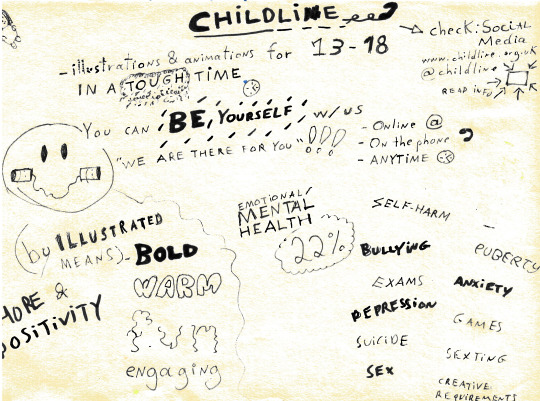 CHILDLINE
- illustrations & animations for 13-18
IN A TOUGH TIME
check: Social
Media
www.childline.org.uk
@childline
READ INFO
YOU CAN BE YOURSELF w/ US
"WE ARE THERE FOR YOU" !!!
- Online @
- On the phone
- ANYTIME
(by ILLUSTRATED
MEANS) - BOLD
WARM
FUN
engaging
HOPE &
POSITIVITY
EMOTIONAL/
MENTAL
HEALTH
22%
SELF-HARM
BULLYING
PUBERTY
EXAMS
ANXIETY
DEPRESSION
GAMES
SUICIDE
SEXTING
SEX
CREATIVE
REQUIREMENTS